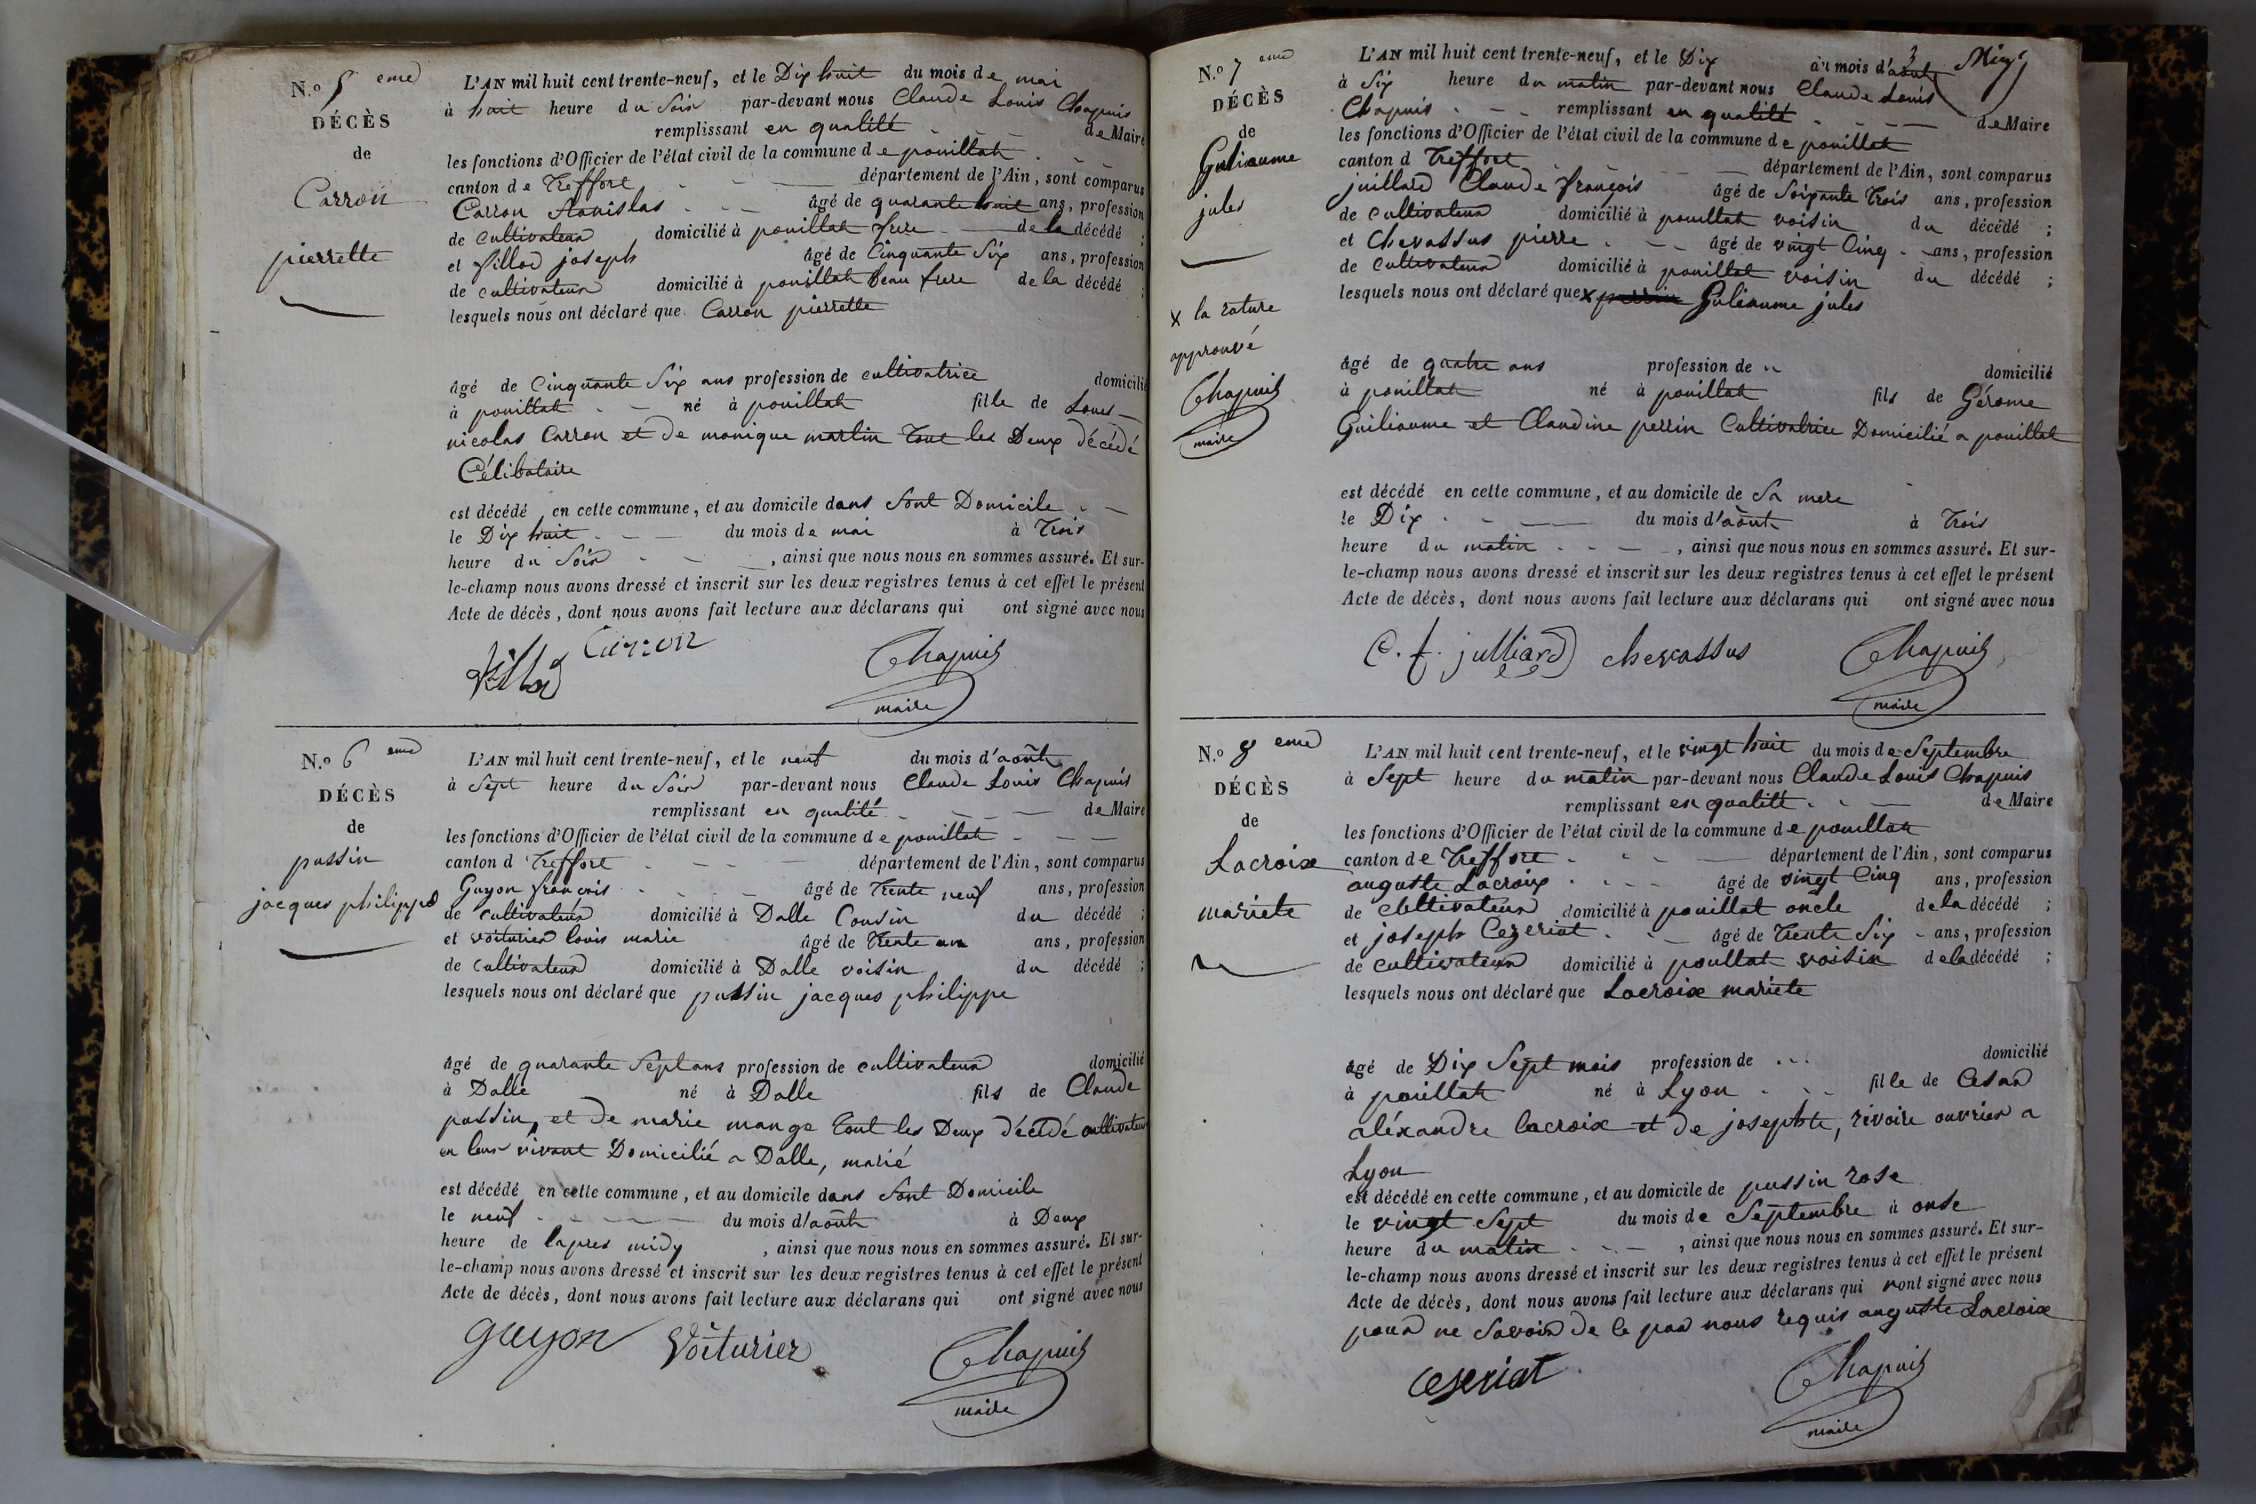 N.º 5 eme
DÉCÈS
de
Carron
pierrette
L'AN mil huit cent trente-neuf, et le Dix huit du mois de mai
à huit heure du Soir par-devant nous Claude Louis Chapuis
remplissant en qualité de Maire
les fonctions d'Officier de l'état civil de la commune de pouillat
canton de Treffort département de l'Ain, sont comparus
Carron Stanislas âgé de quarante huit ans, profession
de cultivateur domicilié à pouillat frere de la décédé ;
et Villod joseph âgé de Cinquante Six ans, profession
de cultivateur domicilié à pouillat beau frere de la décédé ;
lesquels nous ont déclaré que Carron pierrette
âgé de Cinquante Six ans profession de cultivatrice domicilié
à pouillat né à pouillat fille de Louis
nicolas Carron et de monique martin tout les Deux décédé
Célibataire
est décédé en cette commune, et au domicile dans Sont Domicile
le Dix huit du mois de mai à Trois
heure du Soir , ainsi que nous nous en sommes assuré. Et sur-
le-champ nous avons dressé et inscrit sur les deux registres tenus à cet effet le présent
Acte de décès, dont nous avons fait lecture aux déclarans qui ont signé avec nous
Villod Carron Chapuis
maire
N.º 6 eme
DÉCÈS
de
pussin
jacques philippe
L'AN mil huit cent trente-neuf, et le neuf du mois d'août
à Sept heure du Soir par-devant nous Claude Louis Chapuis
remplissant en qualité de Maire
les fonctions d'Officier de l'état civil de la commune de pouillat
canton d Treffort département de l'Ain, sont comparus
Guyon françois âgé de Trente neuf ans, profession
de cultivateur domicilié à Dalle Cousin du décédé ;
et voiturier louis marie âgé de Trente un ans, profession
de Cultivateur domicilié à Dalle voisin du décédé ;
lesquels nous ont déclaré que pussin jacques philippe
âgé de quarante Sept ans profession de cultivateur domicilié
à Dalle né à Dalle fils de Claude
pussin, et de marie mange tout les Deux décédé cultivateur
en leur vivant Domicilié a Dalle, marié
est décédé en cette commune, et au domicile dans Sont Domicile
le neuf du mois d'août à Deux
heure de lapres midy , ainsi que nous nous en sommes assuré. Et sur-
le-champ nous avons dressé et inscrit sur les deux registres tenus à cet effet le présent
Acte de décès, dont nous avons fait lecture aux déclarans qui ont signé avec nous
guyon Voiturier Chapuis
maire
3
N.º 7 eme
DÉCÈS
de
Guliaume
jules
x la rature
approuvé
Chapuis
maire
L'AN mil huit cent trente-neuf, et le Dix du mois d'août
à Six heure du matin par-devant nous Claude Louis
Chapuis remplissant en qualité de Maire
les fonctions d'Officier de l'état civil de la commune de pouillat
canton d Treffort département de l'Ain, sont comparus
juillard Claude françois âgé de Soixante Trois ans, profession
de Cultivateur domicilié à pouillat voisin du décédé ;
et Chevassus pierre âgé de vingt Cinq ans, profession
de Cultivateur domicilié à pouillat voisin du décédé ;
lesquels nous ont déclaré que x perrin Guliaume jules
âgé de quatre ans profession de domicilié
à pouillat né à pouillat fils de Gérome
Guiliaume et Claudine perrin Cultivatrice Domicilié a pouillat
est décédé en cette commune, et au domicile de Sa mere
le Dix du mois d'août à Trois
heure du matin , ainsi que nous nous en sommes assuré. Et sur-
le-champ nous avons dressé et inscrit sur les deux registres tenus à cet effet le présent
Acte de décès, dont nous avons fait lecture aux déclarans qui ont signé avec nous
C. f. julliard chevassus Chapuis
maire
N.º 8 eme
DÉCÈS
de
Lacroix
mariete
L'AN mil huit cent trente-neuf, et le vingt huit du mois de Septembre
à Sept heure du matin par-devant nous Claude Louis Chapuis
remplissant en qualité de Maire
les fonctions d'Officier de l'état civil de la commune de pouillat
canton de Treffort département de l'Ain, sont comparus
auguste Lacroix âgé de vingt Cinq ans, profession
de Cultivateur domicilié à pouillat oncle de la décédé ;
et joseph Cezeriat âgé de Trente Six ans, profession
de cultivateur domicilié à pouillat voisin de la décédé ;
lesquels nous ont déclaré que Lacroix mariete
âgé de Dix Sept mois profession de domicilié
à pouillat né à Lyon fille de Cesar
aléxandre lacroix et de josephte, rivoire ouvrier a
Lyon
est décédé en cette commune, et au domicile de pussin rose
le vingt Sept du mois de Septembre à onse
heure du matin , ainsi que nous nous en sommes assuré. Et sur-
le-champ nous avons dressé et inscrit sur les deux registres tenus à cet effet le présent
Acte de décès, dont nous avons fait lecture aux déclarans qui ont signé avec nous
pour ne Savoir de ce par nous requis auguste Lacroix
ceseriat Chapuis
maire